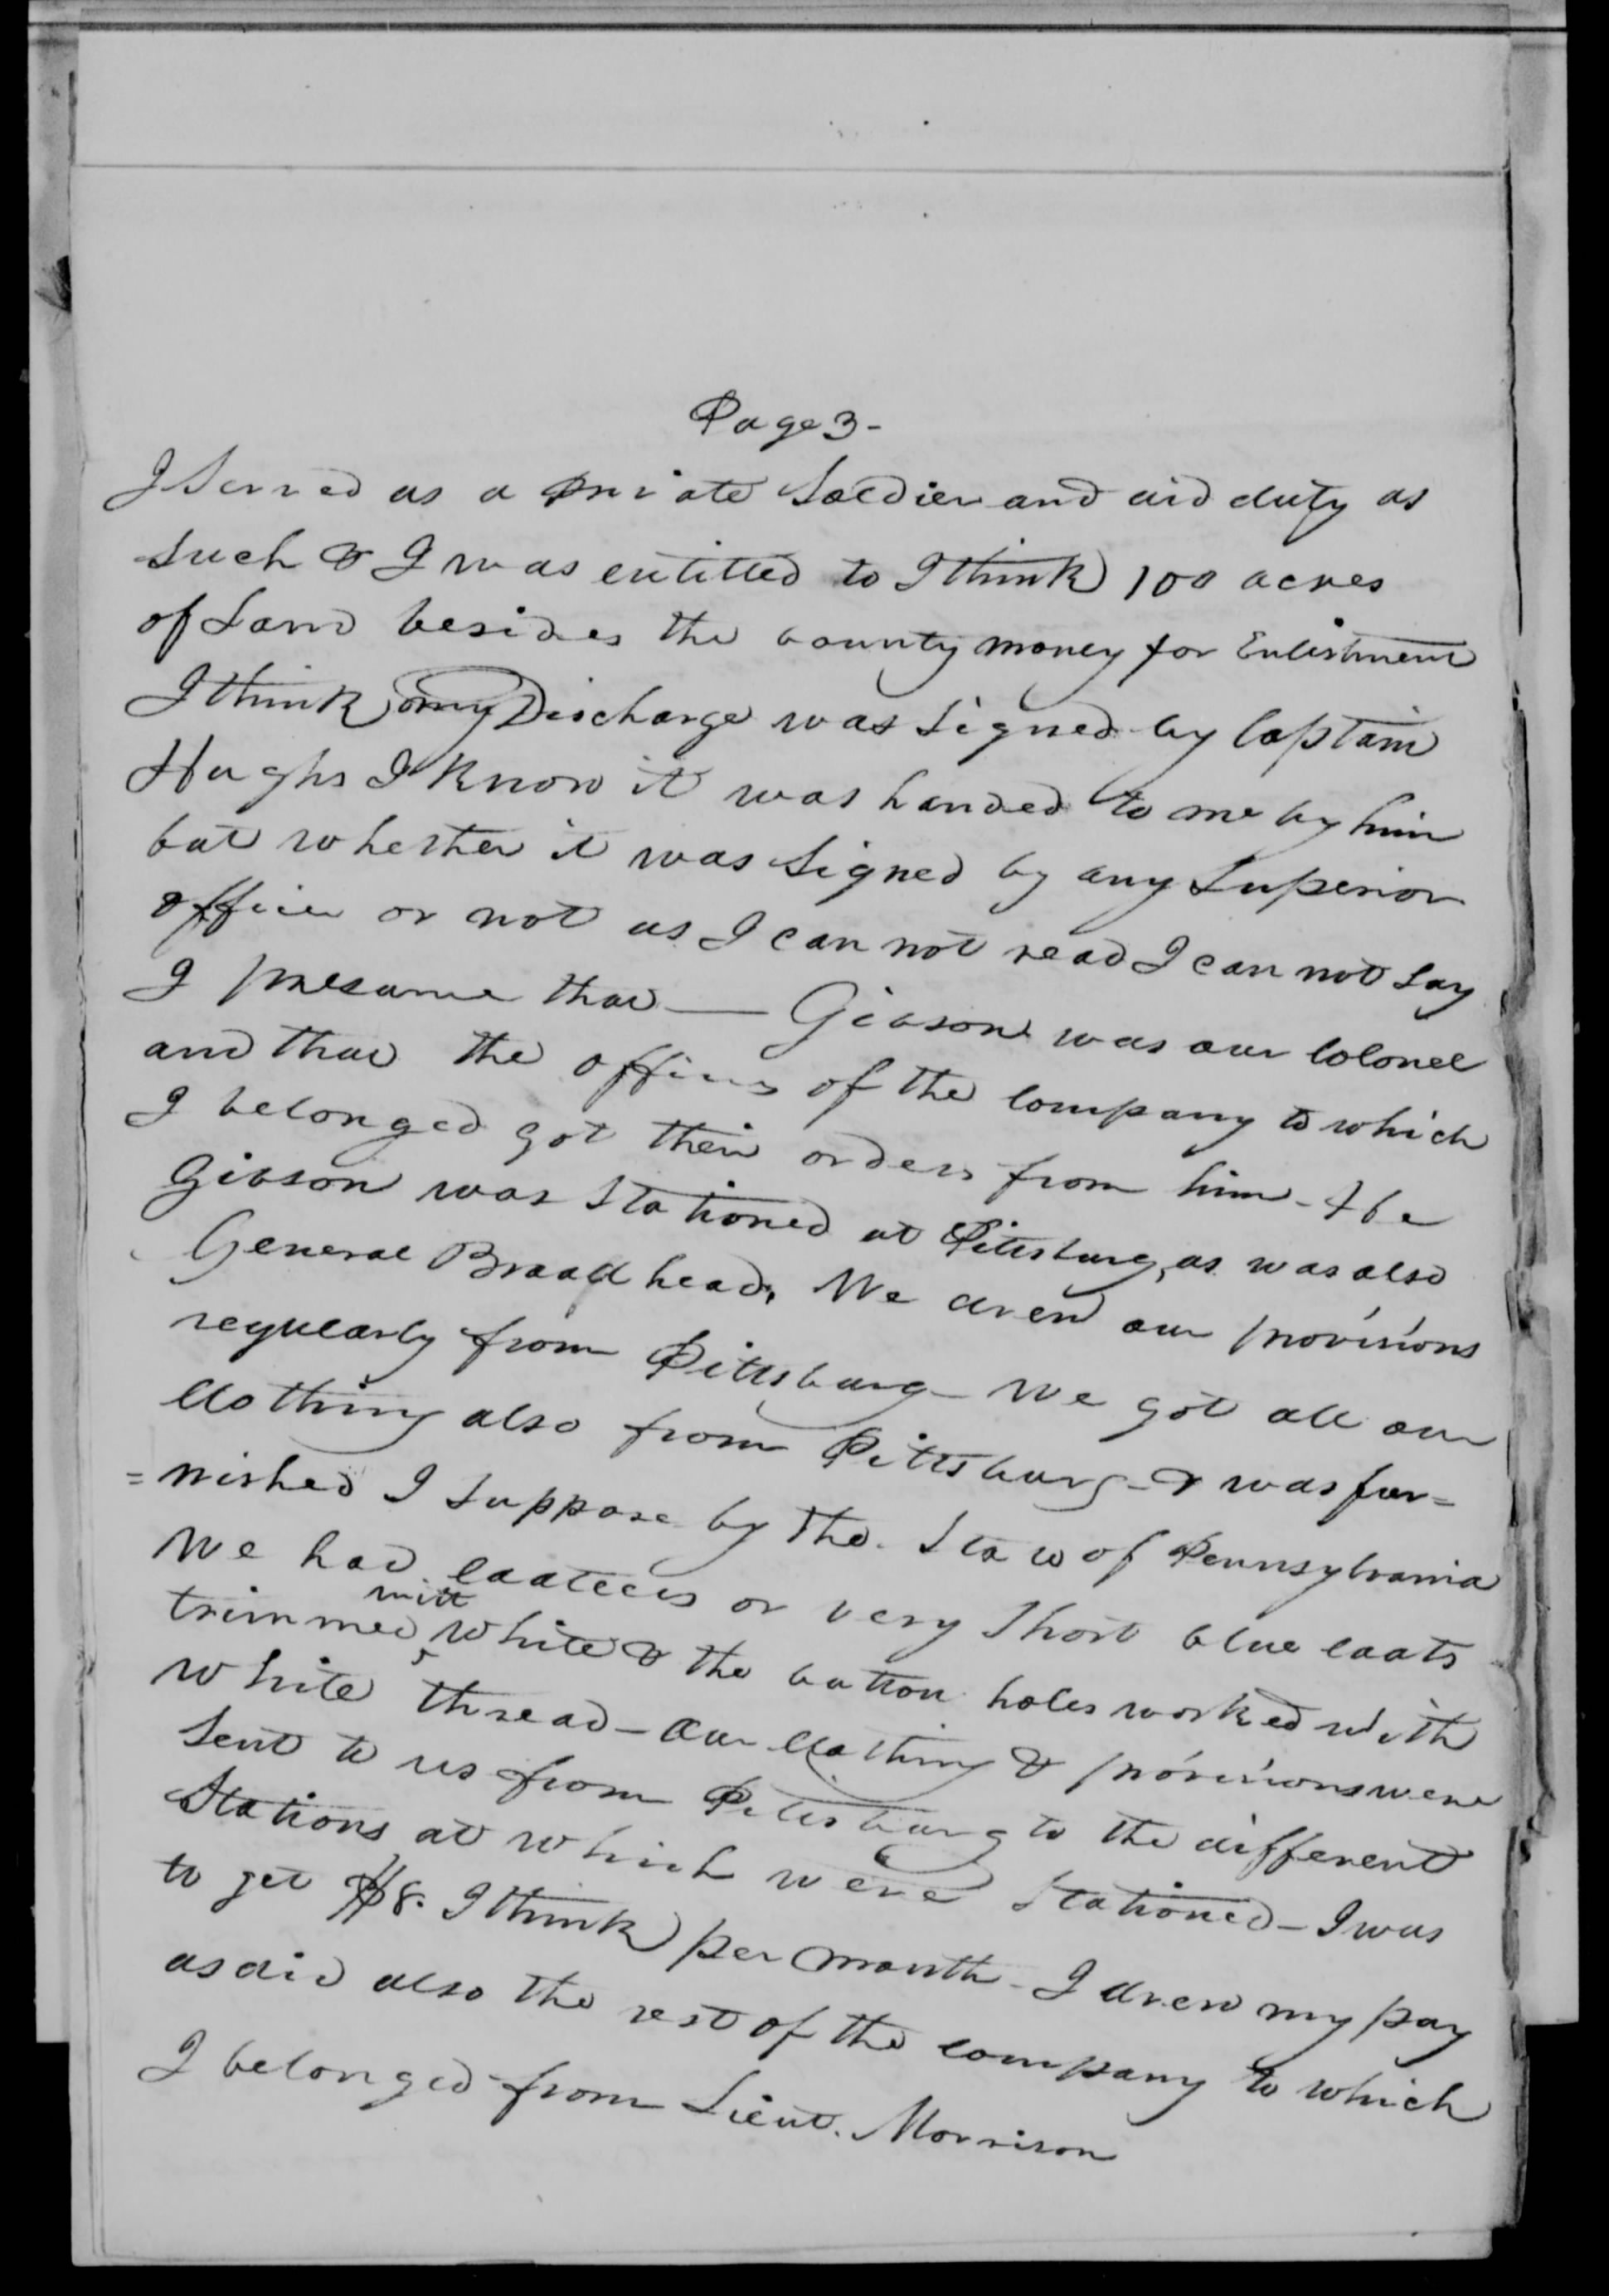 Page 3-
I Served as a private Soldier and did duty as
such & I was entitled to I think 100 acres
of Land besides the bounty money for Enlistment
I think my Discharge was signed by Captain
Hughs I know it was handed to me by him
but whether it was signed by any Superior
officer or not as I can not read I can not say
I presume that — Gibson was our Colonel
and that the officers of the Company to which
I belonged got their orders from him - He
Gibson was Stationed at Pittsburg, as was also
General Broadhead. We drew our provisions
regularly from Pittsburg - We got all our
Clothing also from Pittsburg - & was fur=
=nished I suppose by the State of Pennsylvania
We had coatees or very Short blue coats
trimmed with white & the button holes worked with
white thread - Our Clothing & provisions were
Sent to us from Pittsburg to the different
Stations at which were Stationed - I was
to get $8. I think per month - I drew my pay
as did also the rest of the company to which
I belonged from Lieut. Morrison